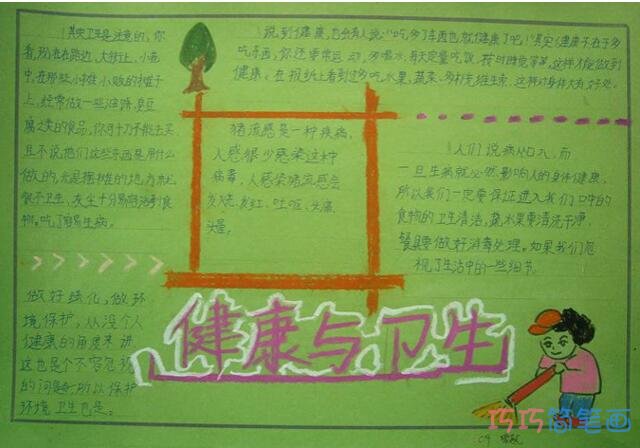 其实卫生是注意的，你
看，现在在路边、大街上、小巷
中，在那些小摊小贩的摊子
上，经常做一些油饼、臭豆
腐之类的食品，你可千万不能去买，
且不说他们这些东西是用什么
做的，光是摆摊的地方就
很不卫生，灰尘十分易刮到食
物。吃了容易生病。
说到健康，也会有人说："吃多了东西也就健康了吧！"其实健康不在于多
吃东西，你还要常运动，多喝水，每天定量吃饭，按时睡觉等等，这样才能做到
健康。在报纸上看到过多吃水果，蔬菜，多补充维生素，这样对身体大有好处。
猪流感是一种疾病，
人感很少感染这种
病毒，人感染猪流感会
发烧、发红、吐呕、头痛、
头晕。
人们说病从口入，而
一旦生病就必然影响人的身体健康，
所以我们一定要保证进入我们口中的
食物的卫生清洁，蔬水果要清洗干净，
餐具要做好消毒处理。如果我们忽
视了生活中的一些细节
做好绿化，做环
境保护，从没个人
健康的角度来讲，
这也是个不容忽视
的问题，所以保护
环境卫生也是。
健康与卫生
巧巧简笔画